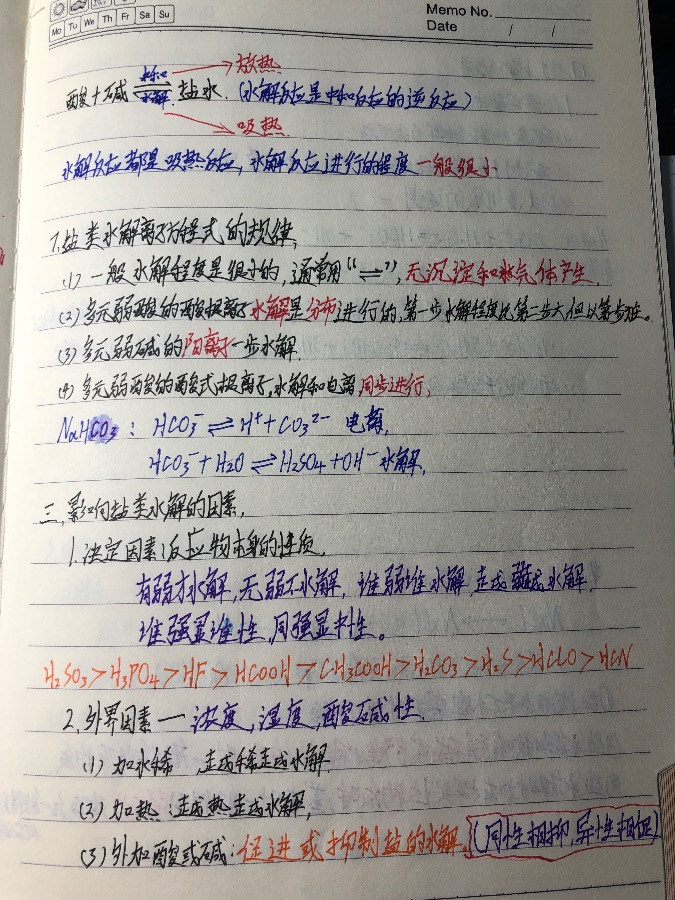 Memo No.
Mo Tu We Th Fr Sa Su
Date / /
放热
中和
酸+碱⇌盐水.(水解反应是中和反应的逆反应)
水解
吸热
水解反应都是吸热反应,水解反应进行的程度一般很小
1.盐类水解离子方程式的规律,
(1)一般水解程度是很小的,通常用“⇌”,无沉淀和气体产生.
(2)多元弱酸的酸根离子水解是分布进行的,第一步水解程度比第二步大但以第一步为准。
(3)多元弱碱的阳离子一步水解.
(4)多元弱酸的酸式根离子,水解和电离同步进行,
NaHCO3: HCO3⁻⇌H⁺+CO3²⁻ 电离,
HCO3⁻+H2O⇌H2SO4+OH⁻水解,
三,影响盐类水解的因素,
1.决定因素:反应物本身的性质,
有弱才水解,无弱不水解,谁弱谁水解,越弱越水解,
谁强显谁性,同强显中性。
H2SO3>H3PO4>HF>HCOOH>CH3COOH>H2CO3>H2S>HClO>HCN
2.外界因素—浓度,湿度,酸碱性.
(1)加水稀 越稀越水解.
(2)加热:越热越水解,
(3)外加酸或碱:促进或抑制盐的水解.(同性相抑,异性相促)